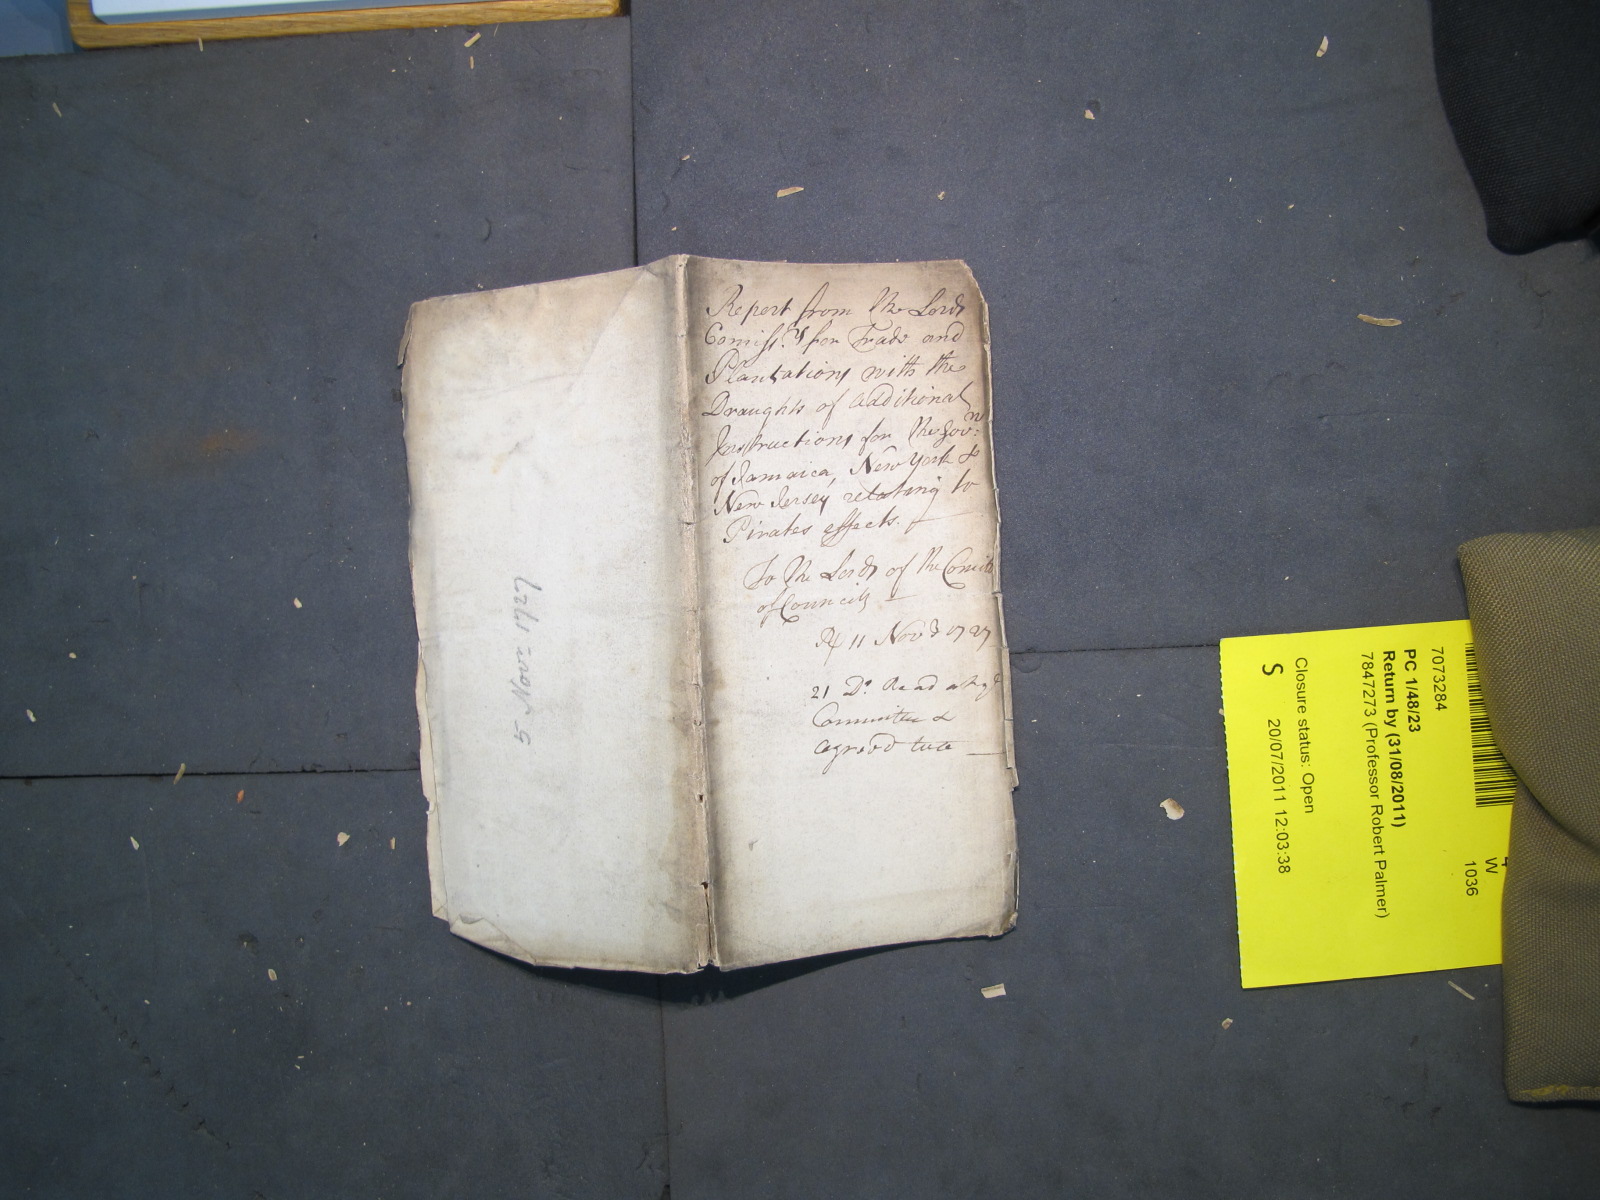 Report from the Lords
Comiss.rs for Trade and
Plantations with the
Draughts of Additional
Instructions for the Gov.rs
of Jamaica, New York &
New Jersey relating to
Pirates effects.
To the Lords of the Comittee
of Councill
Rx 11 Nov.r 1727
21 D.o Read at ye
Committee &
agreed to
5 Novr 1727
7073284
PC 1/48/23
Return by (31/08/2011)
7847273 (Professor Robert Palmer)
Closure status: Open
S
20/07/2011 12:03:38
W
1036